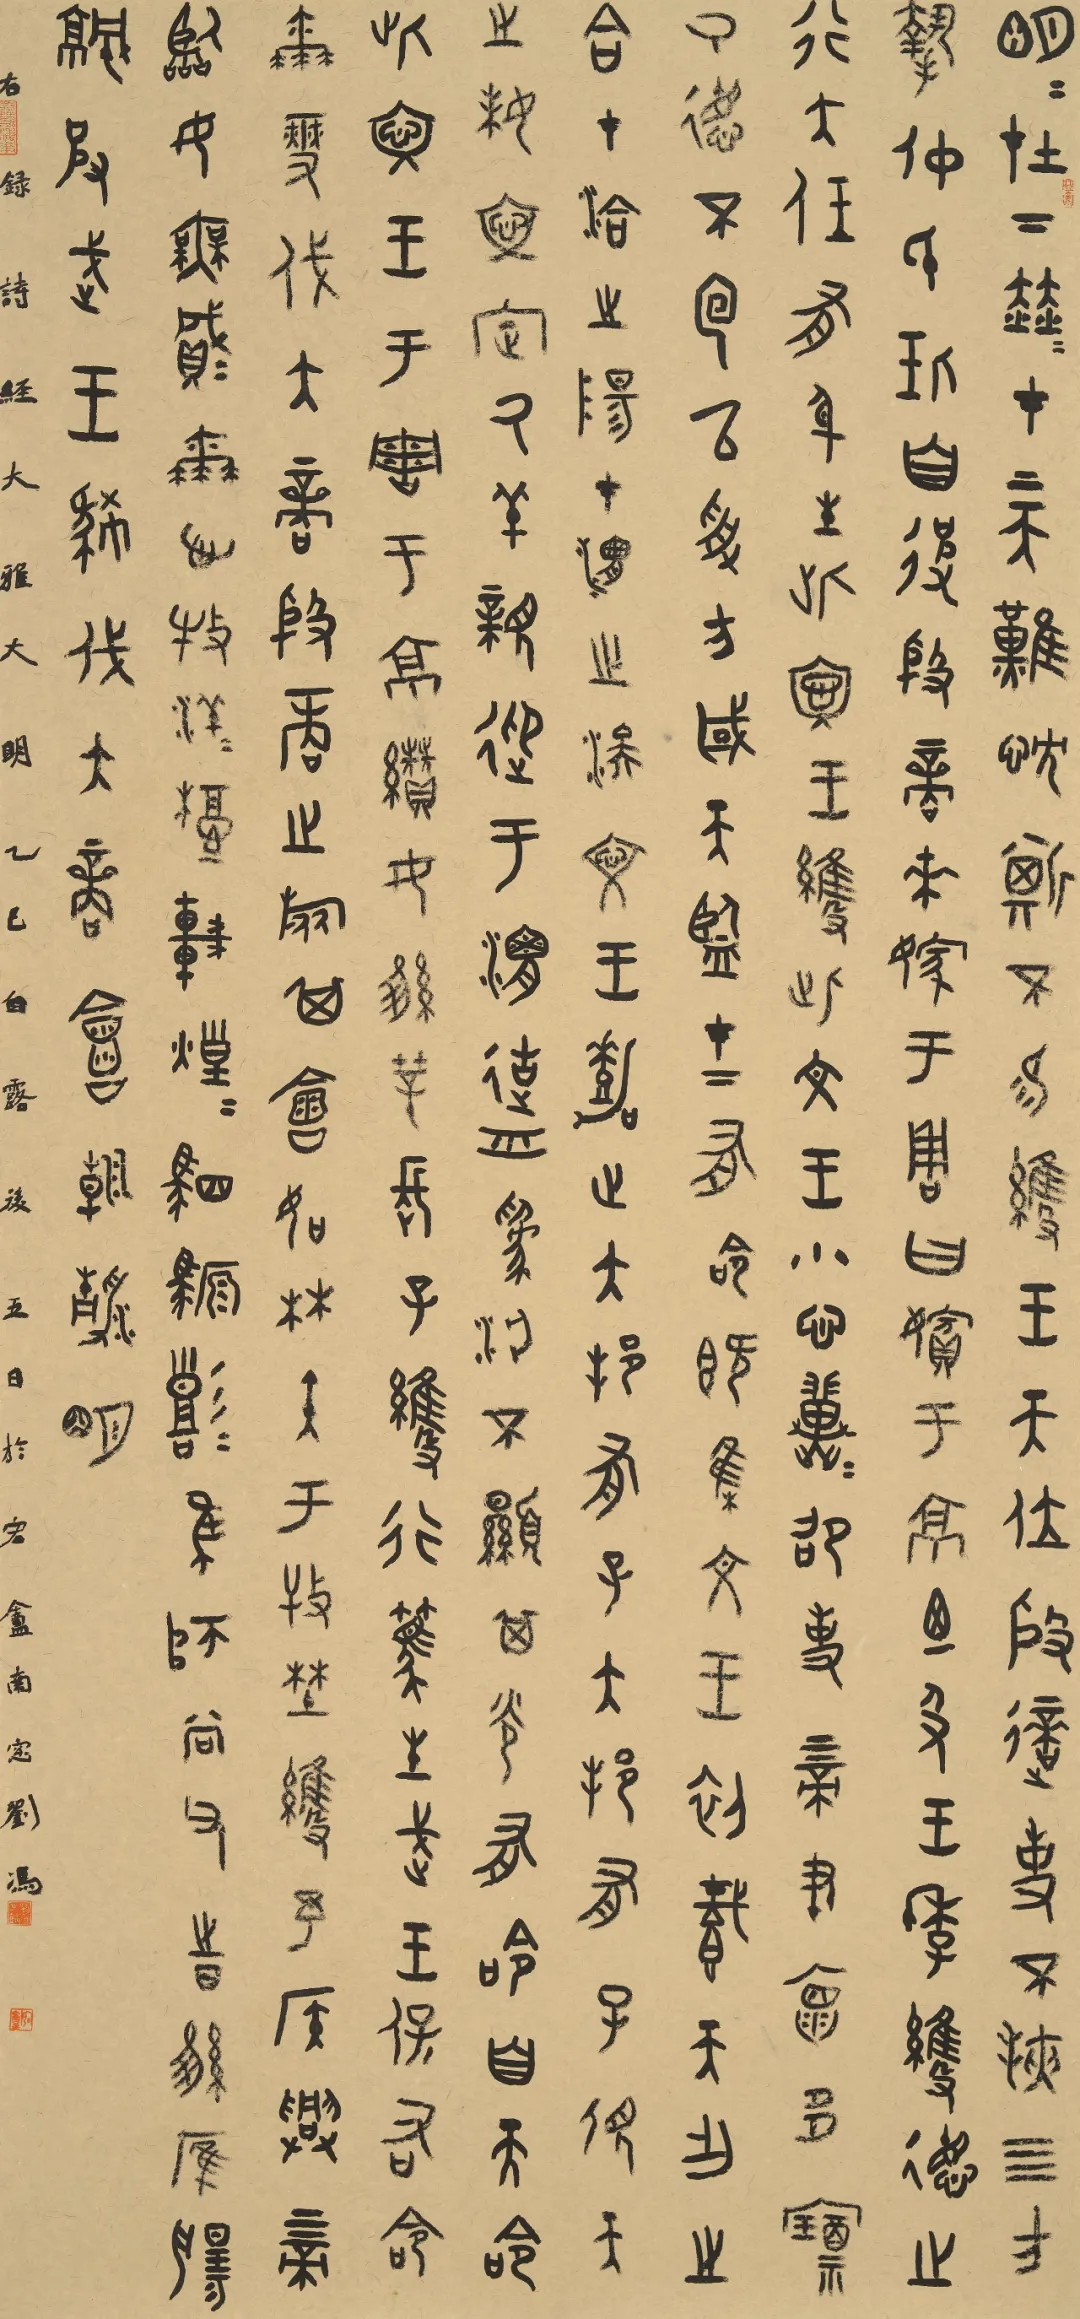 明明在下赫赫在上天難忱斯不易維王天位殷適使不挾四方
摯仲氏任自彼殷商來嫁于周曰嬪于京乃及王季維德之
行大任有身生此文王維此文王小心翼翼昭事上帝聿懷多福
厥德不回以受方國天監在下有命既集文王初載天作之
合在洽之陽在渭之涘文王嘉止大邦有子大邦有子俔天
之妹文定厥祥親迎于渭造舟為梁不顯其光有命自天命
此文王于周于京纘女維莘長子維行篤生武王保右命
爾燮伐大商殷商之旅其會如林矢于牧野維予侯興上帝
臨女無貳爾心牧洋洋檀車煌煌駟騵彭彭維師尚父時維鷹揚
涼彼武王肆伐大商會朝清明
右錄詩經大雅大明乙巳白露後五日於宏盦南窗劉馮